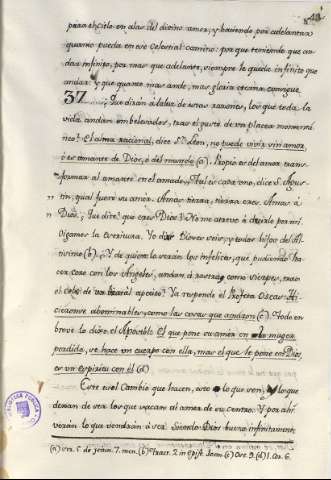 para el cielo en alas del divino amor, y haviendo por adelantar
quanto pueda en ese celestial camino: por que teniendo que an
dar infinito, por mas que adelante, siempre le queda infinito que
andar: y que quanto mas ande, mas gloria
37. Que diran à la luz de unas razones, los que toda la
vida andan embelesados, tras el gusto de un placer momenta
neo? El alma racional, dice S. Leon, no puede vivir sin amor,
ò es amante de Dios, ò del mundo (a). Propio es del amor trans-
formar al amante en el amado. Tal es cada uno, dice S. Agus-
tin, qual fuere su amor. Amas tierra, tierra eres. Amas à
Dios, Que diré? que eres Dios? No me atrevo à decirlo por mi.
Oigamos la Escritura. Yo dixe Dioses sois, y todos hijos del Al-
tisimo (b). Y de quien lo verán los infelices, que pudiendo ha
cerse con los Angeles, andan
el de un apetito? Ya responde el Profeta Oseas: Hi-
cieronse abominables, como las cosas que amaron (c). Todo en
breve lo dixo el Apostol: El que pone su amor en la muger
perdida, se hace un cuerpo con ella, mas el que le pone en Dios
es un espiritu con él (d)
Este es el cambio que hacen, esto lo que son, y lo que
dexan de ser los que sacan al amor de su centro. Y por ahi
verán lo que vendrán à ser. Siendo Dios bueno infinitamente
(a) Ser. 5. de jejun. 7. men. (b) Tract. 2. in Epist. Joan. (c) Ose. 9. (d) 1. Cor. 6.